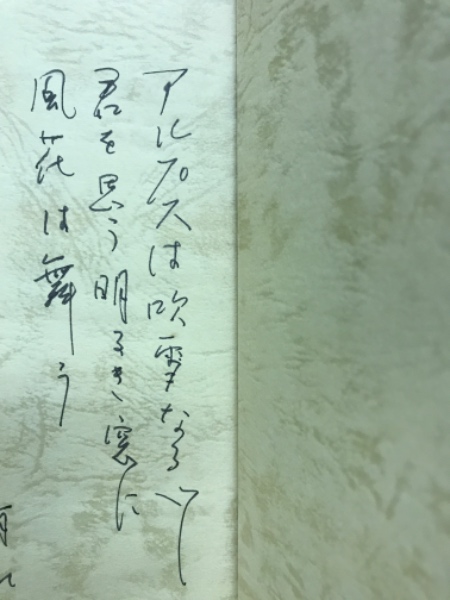 アルプスは吹雪なるべし
君を思う明るき窓に
風花は舞う